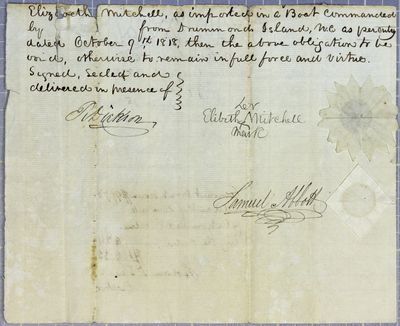 Elizabeth Mitchell, as imported in a Boat Commanded
by from Drummond Island, UC as per entry
dated October 9th 1818, then the above obligation to be
void, otherwise to remain in full force and virtue.
Signed, Sealed and
delivered in presence of
her
Elibeth Mitchell
mark
Samuel Abbott